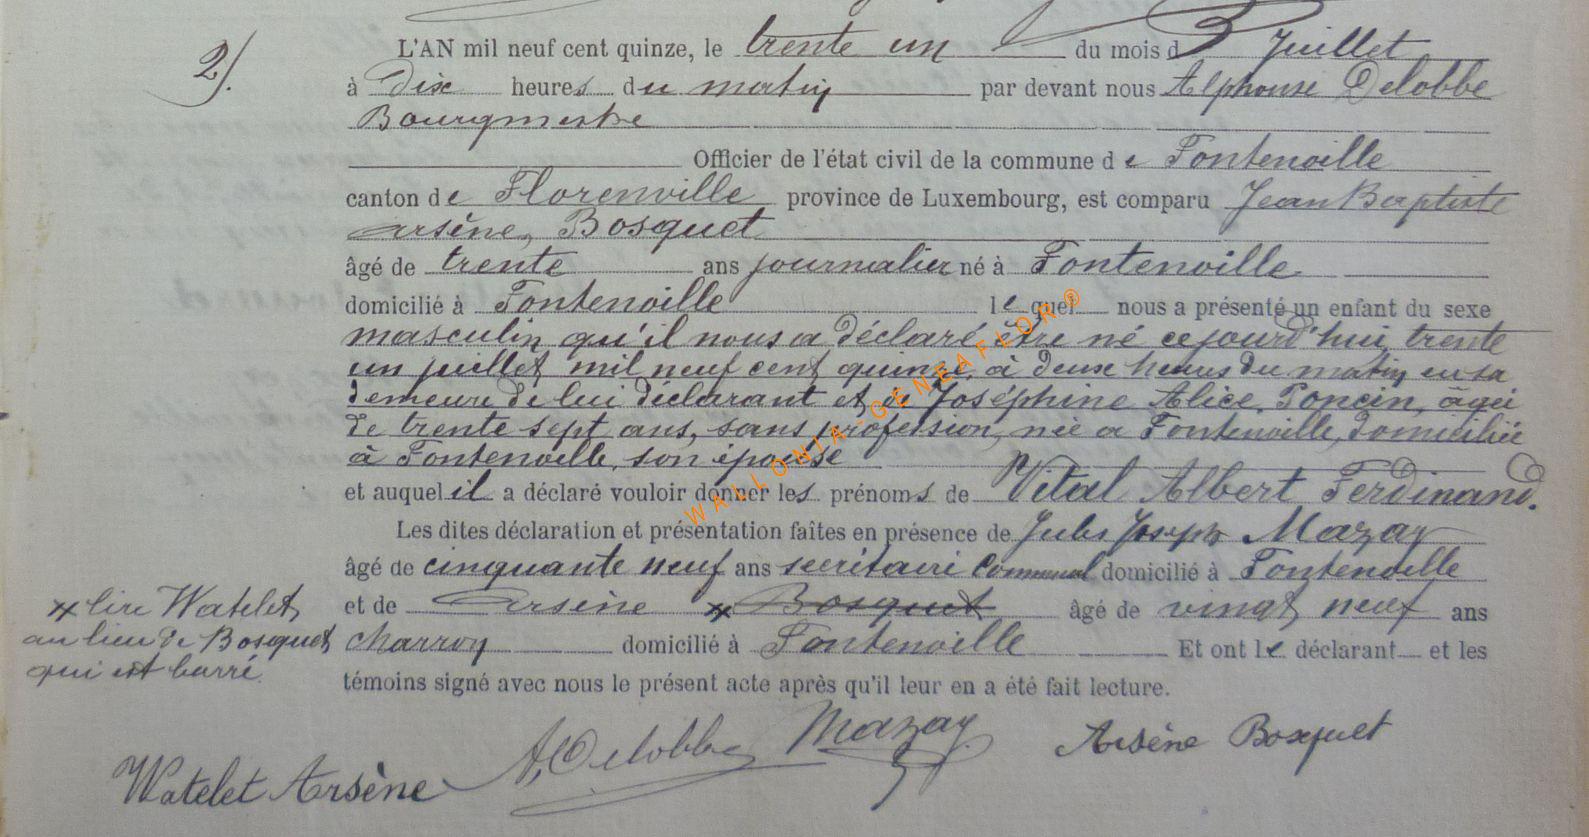 2/. L'AN mil neuf cent quinze, le trente un du mois d Juillet
à dix heures du matin par devant nous Alphonse Delobbe
Bourgmestre
Officier de l'état civil de la commune de Fontenoille
canton de Florenville province de Luxembourg, est comparu Jean Baptiste
Arsène, Bosquet
âgé de trente ans journalier né à Fontenoille
domicilié à Fontenoille lequel nous a présenté un enfant du sexe
masculin qu'il nous a déclaré être né cejourd'hui trente
un juillet mil neuf cent quinze, à deux heures du matin en sa
demeure de lui déclarant et de Joséphine Alice Poncin, âgée
de trente sept ans, sans profession, née à Fontenoille, domiciliée
à Fontenoille, son épouse
et auquel il a déclaré vouloir donner les prénoms de Vital Albert Ferdinand.
Les dites déclaration et présentation faîtes en présence de Jules Joseph Mazay
âgé de cinquante neuf ans secrétaire communal domicilié à Fontenoille
et de Arsène x Bosquet âgé de vingt neuf ans
charron domicilié à Fontenoille Et ont le déclarant et les
témoins signé avec nous le présent acte après qu'il leur en a été fait lecture.
x lire Watelet
au lieu de Bosquet
qui est barré
Watelet Arsène A, Delobbe Mazay Arsène Bosquet
WALLONIA-GENEAFLOR®